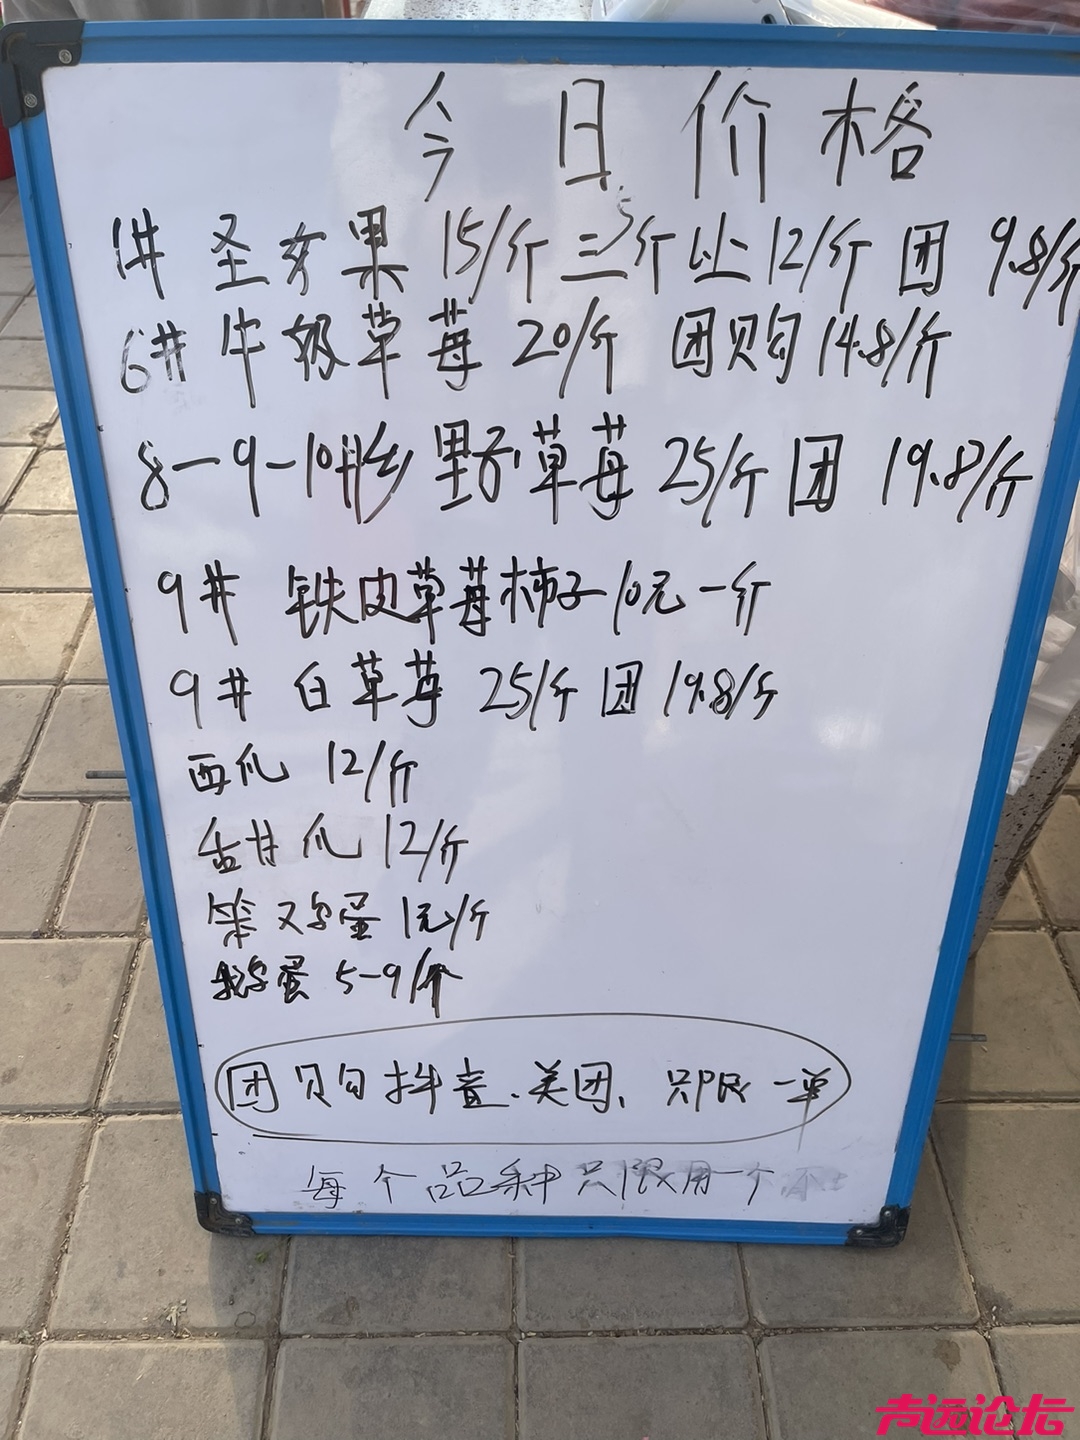 今日价格
1# 圣女果 15/斤 三斤以上12/斤 团 9.8/斤
6# 牛奶草莓 20/斤 团购14.8/斤
8-9-10# 野草莓 25/斤 团 19.8/斤
9# 铁皮草莓柿子10元一斤
9# 白草莓 25/斤 团 19.8/斤
西瓜 12/斤
甜瓜 12/斤
笨鸡蛋 1元/斤
鹅蛋 5-9/个
团购抖音、美团、只限一单
每个品种只限用一个
声远论坛